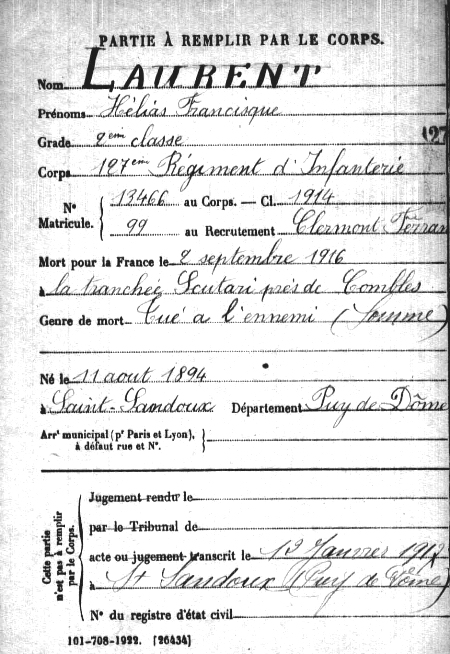 PARTIE À REMPLIR PAR LE CORPS.
Nom LAURENT
Prénoms Hélias Francisque
Grade 2eme classe
127
Corps 127eme Régiment d'Infanterie
N° Matricule. { 13466 au Corps. — Cl. 1914
99 au Recrutement Clermont Ferran
Mort pour la France le 2 septembre 1916
à la tranchée Scutari près de Combles
Genre de mort Tué a l'ennemi (Somme)
Né le 11 aout 1894
à Saint-Sandoux Département Puy de Dôme
Arrt municipal (pr Paris et Lyon),
à défaut rue et N°.
Cette partie n'est pas à remplir par le Corps.
Jugement rendu le
par le Tribunal de
acte ou jugement transcrit le 12 Janvier 1917
à St Sandoux (Puy de Dôme)
N° du registre d'état civil
101-708-1922. [26434]